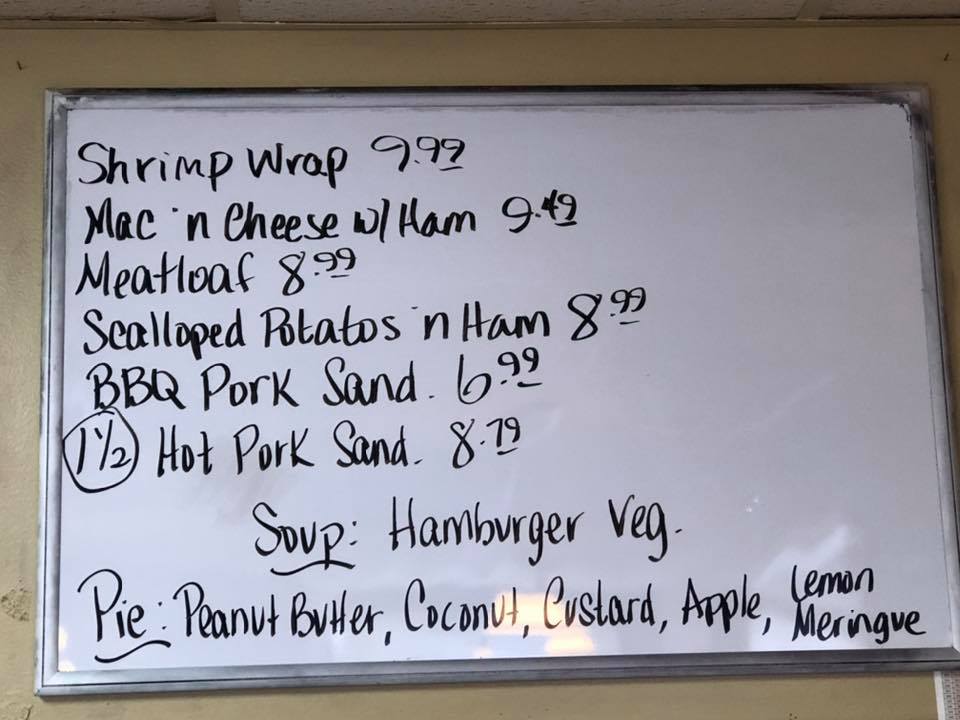 Shrimp Wrap 9.99
Mac 'n Cheese w/ Ham 9.49
Meatloaf 8.99
Scalloped Potatos 'n Ham 8.99
BBQ Pork Sand. 6.99
1 1/2 Hot Pork Sand. 8.79
Soup: Hamburger Veg.
Pie: Peanut Butter, Coconut, Custard, Apple, Lemon Meringue